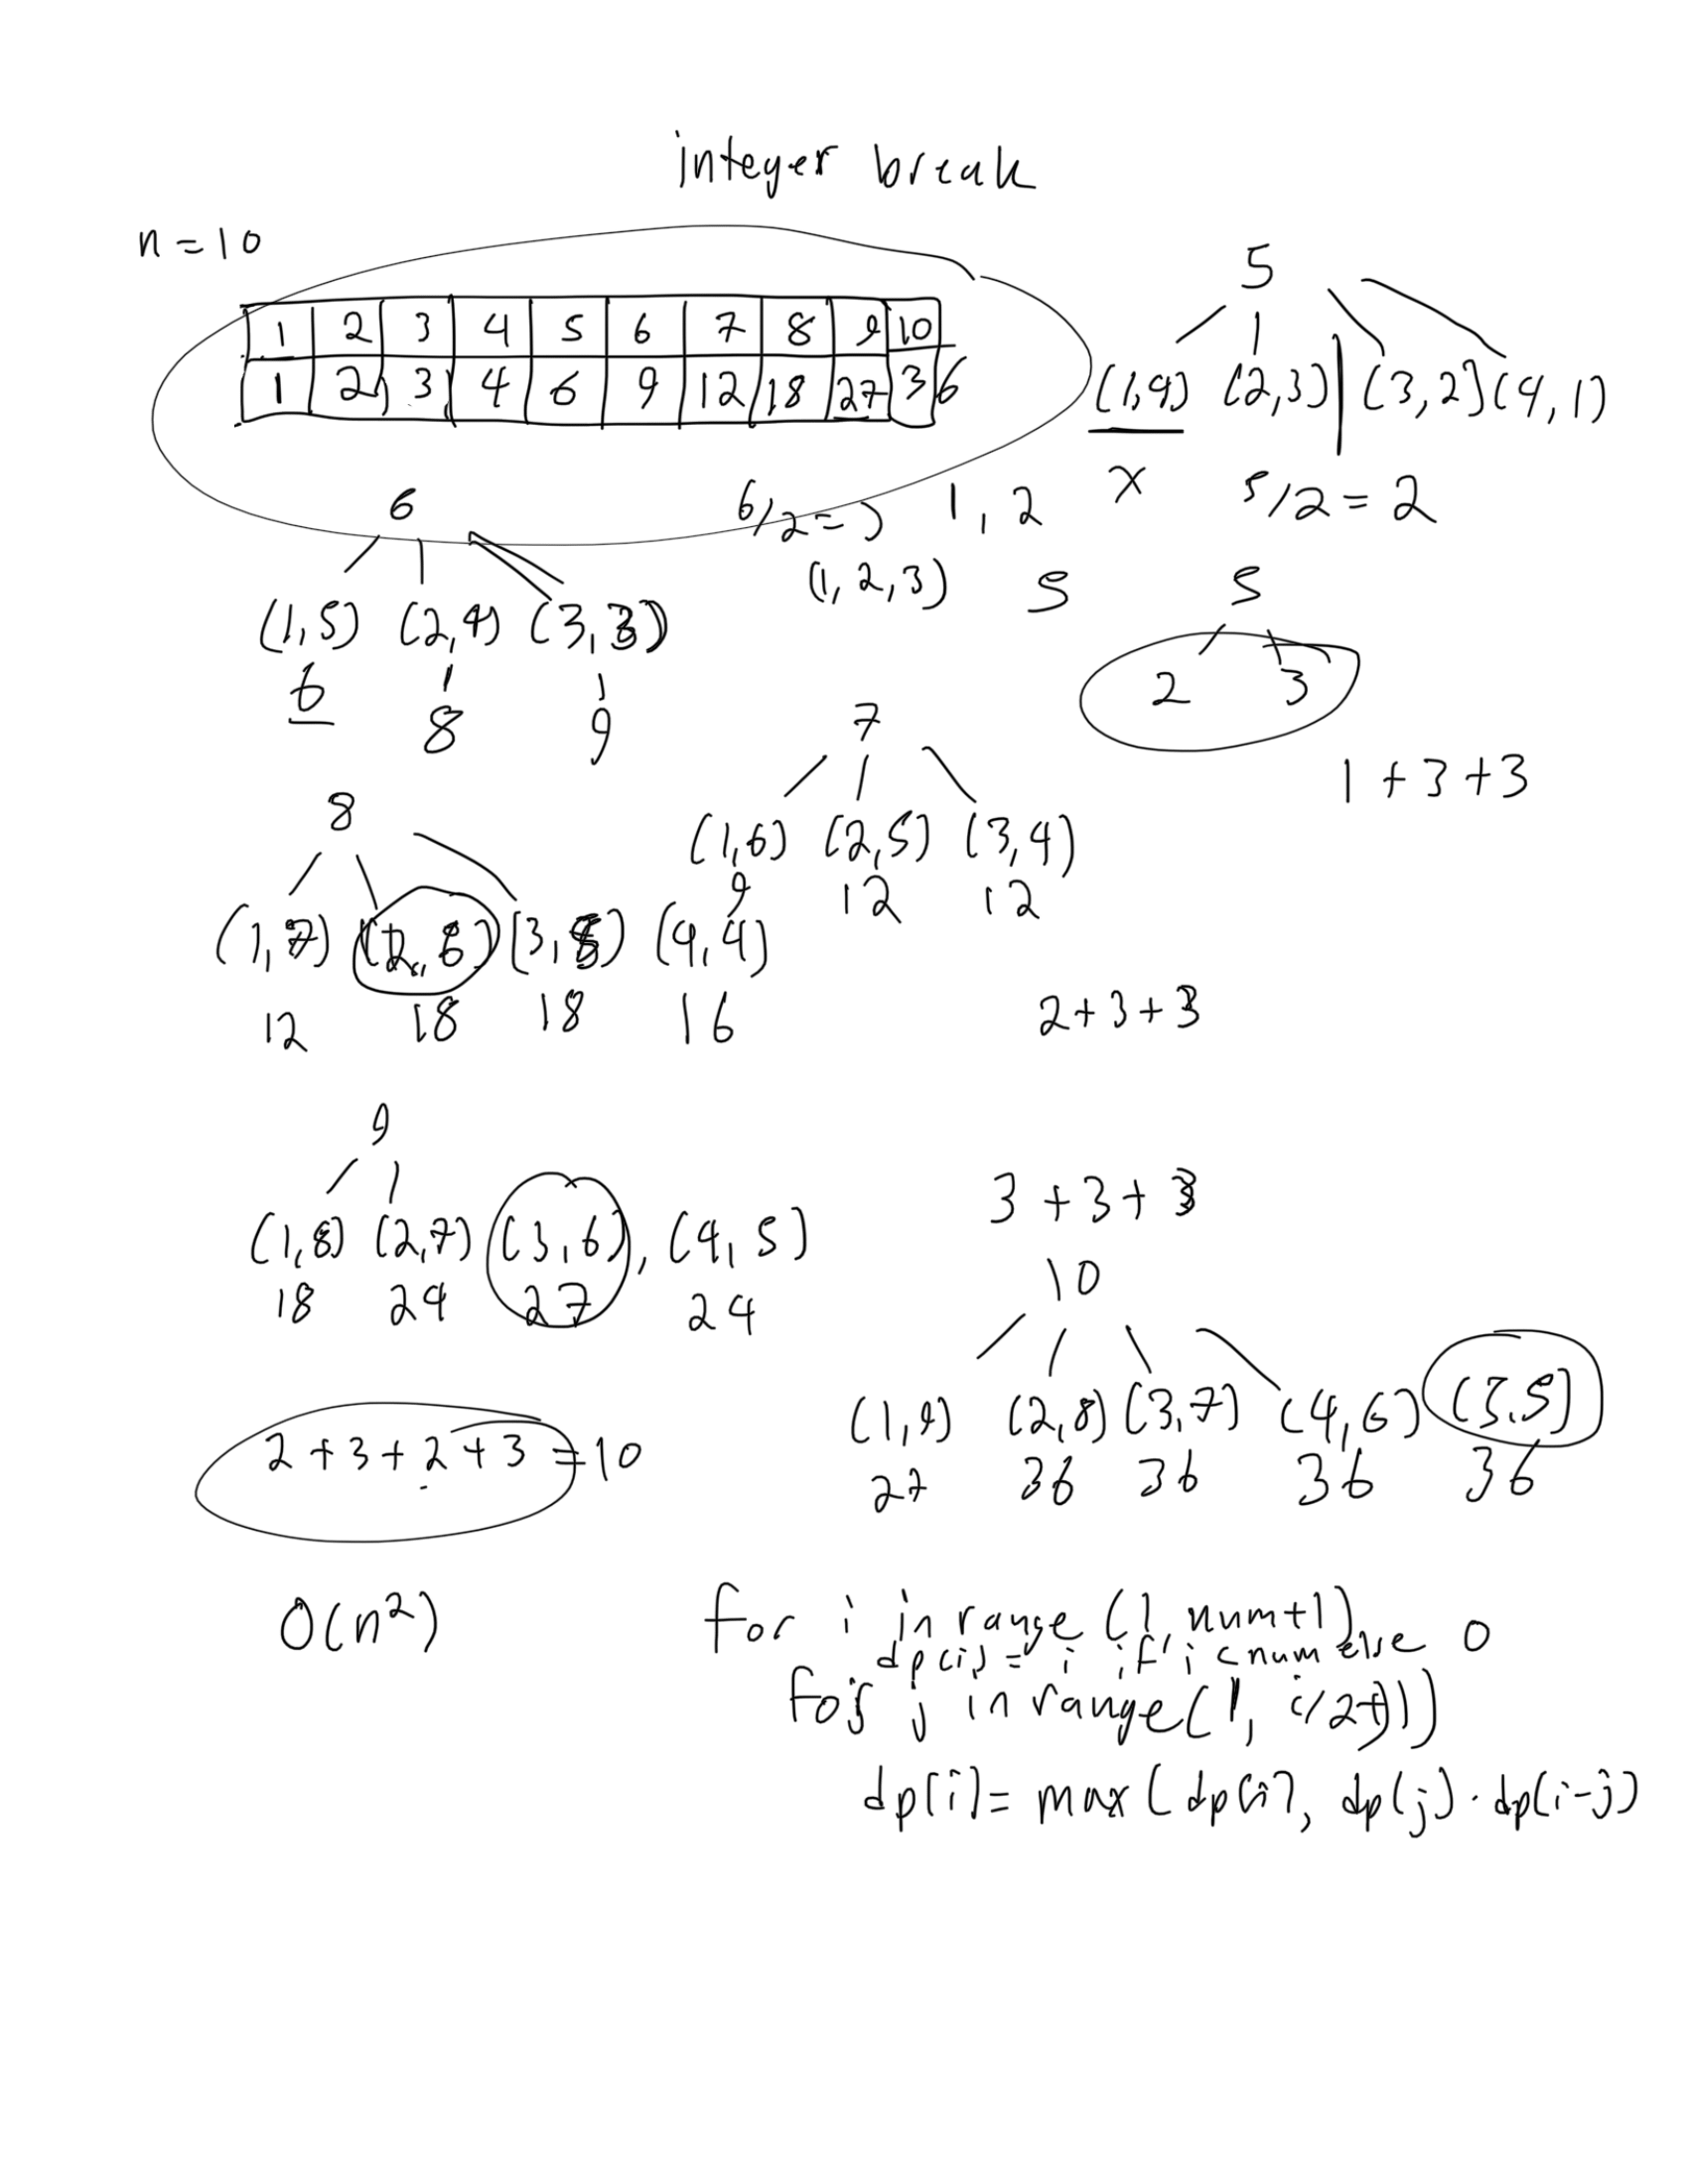 integer break
n = 10
1 2 3 4 5 6 7 8 9 10
1 2 3 4 6 9 12 18 27 36
5
(1,4) (2,3) (3,2) (4,1)
x 5/2 = 2
1, 2
6
6/2 =
(1,2,3)
(1,5) (2,4) (3,3)
6 8 9
5
5
2 3
7
(1,6) (2,5) (3,4)
9 12 12
1 + 3 + 3
8
(1,7) (2,6) (3,5) (4,4)
12 18 18 16
2 + 3 + 3
9
(1,8) (2,7) (3,6), (4,5)
18 24 27 24
3 + 3 + 3
10
(1,9) (2,8) (3,7) (4,6) (5,5)
27 36 36 36 36
2 + 3 + 2 + 3 = 10
O(n²)
for i in range (1, num+1)
dp(i) = i if i < num else 0
for j in range(1, i/2+1))
dp[i] = max (dp[i], dp(j) · dp(i-j)